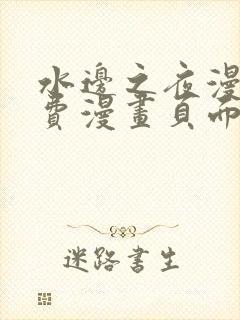 水邊之夜漫
費漫畫頁面
迷路書生